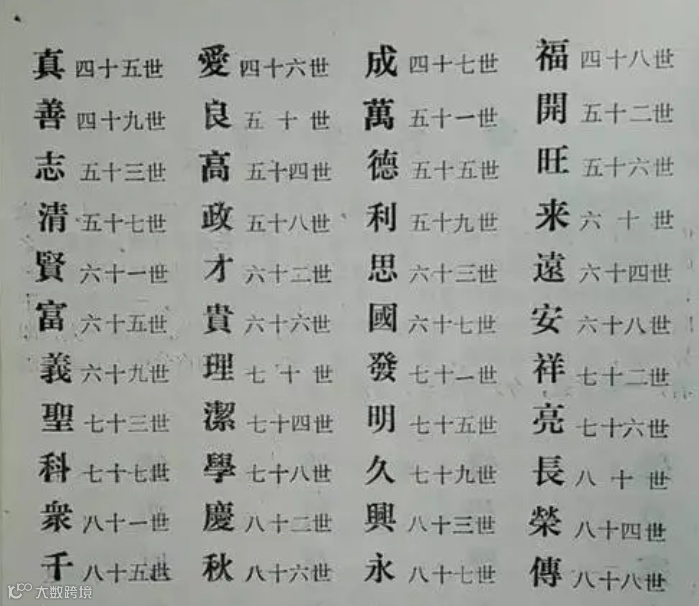 真 四十五世 愛 四十六世 成 四十七世 福 四十八世
善 四十九世 良 五十世 萬 五十一世 開 五十二世
志 五十三世 高 五十四世 德 五十五世 旺 五十六世
清 五十七世 政 五十八世 利 五十九世 来 六十世
賢 六十一世 才 六十二世 思 六十三世 遠 六十四世
富 六十五世 貴 六十六世 國 六十七世 安 六十八世
義 六十九世 理 七十世 發 七十一世 祥 七十二世
聖 七十三世 潔 七十四世 明 七十五世 亮 七十六世
科 七十七世 學 七十八世 久 七十九世 長 八十世
衆 八十一世 慶 八十二世 興 八十三世 榮 八十四世
千 八十五世 秋 八十六世 永 八十七世 傳 八十八世
大数跨境